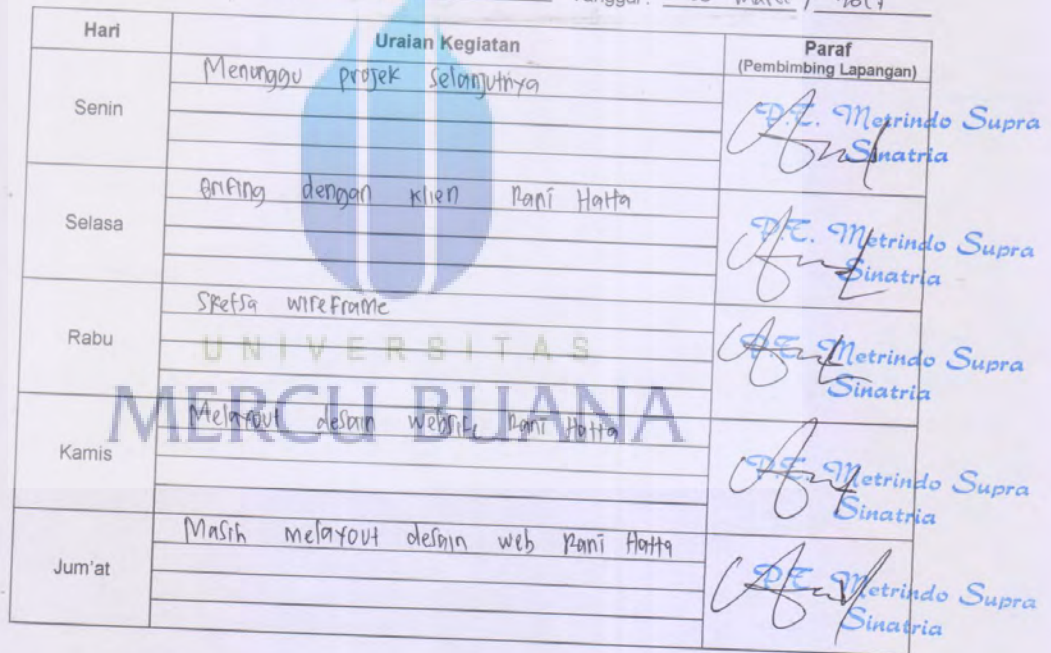 Tanggal :
Hari
Uraian Kegiatan
Paraf
(Pembimbing Lapangan)
Senin
Menunggu projek selanjutnya
P.T. Metrindo Supra
Sinatria
Selasa
Brifing dengan klien Rani Hatta
P.T. Metrindo Supra
Sinatria
Rabu
Sketsa wireframe
P.T. Metrindo Supra
Sinatria
UNIVERSITAS
MERCU BUANA
Kamis
Melayout desain website Rani Hatta
P.T. Metrindo Supra
Sinatria
Jum'at
Masih melayout desain web Rani Hatta
P.T. Metrindo Supra
Sinatria